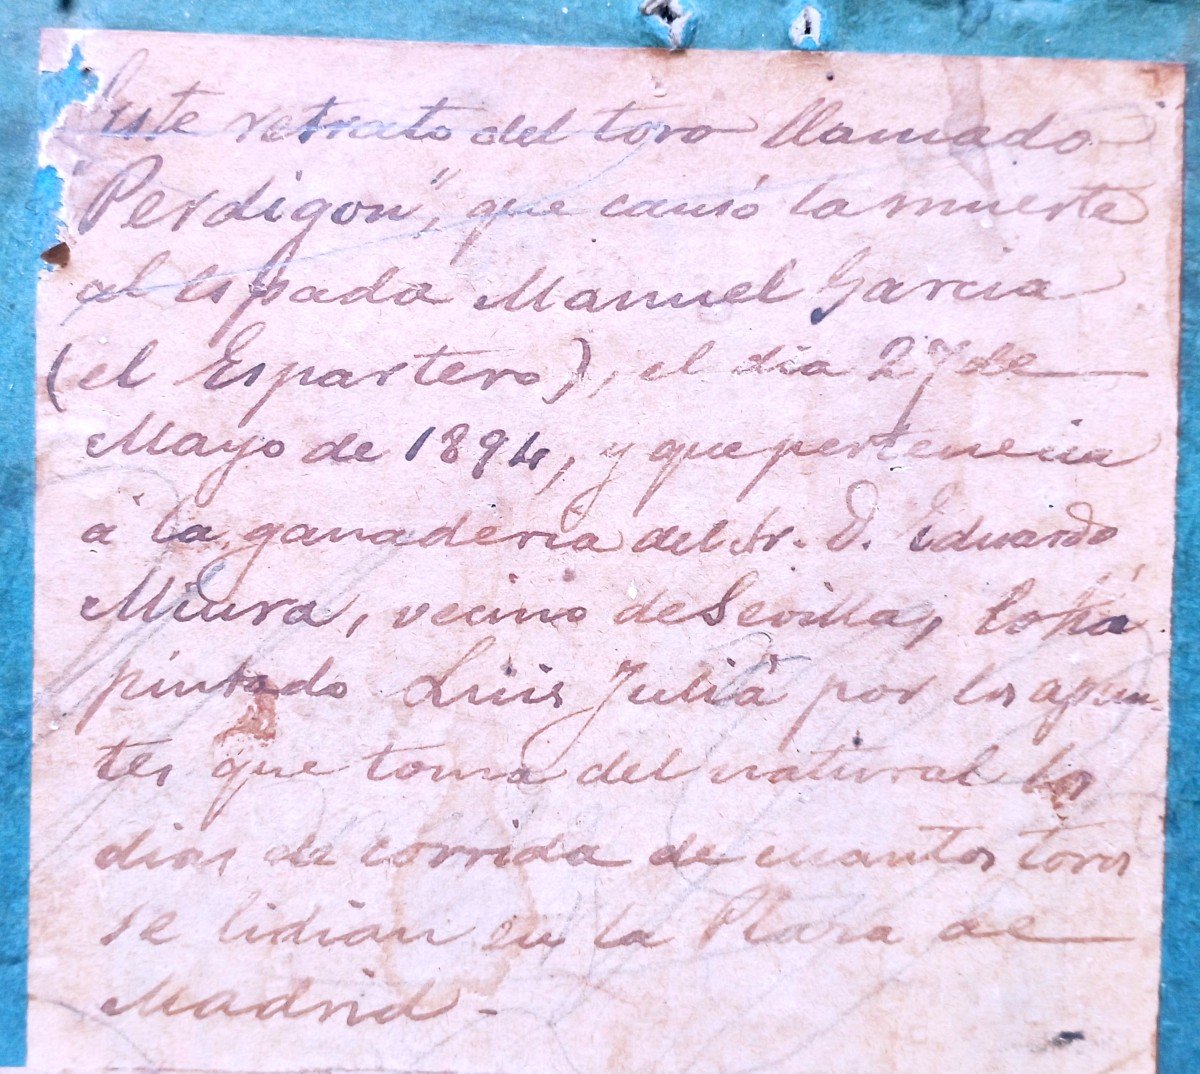 Este retrato del toro llamado
"Perdigon", que causó la muerte
al espada Manuel Garcia
(el Espartero), el dia 27 de
Mayo de 1894, y que pertenecia
á la ganaderia del Sr. D. Eduardo
Miura, vecino de Sevilla, lo há
pintado Luis Juliá por los apun-
tes que toma del natural los
dias de corrida de cuantos toros
se lidian en la Plaza de
Madrid -